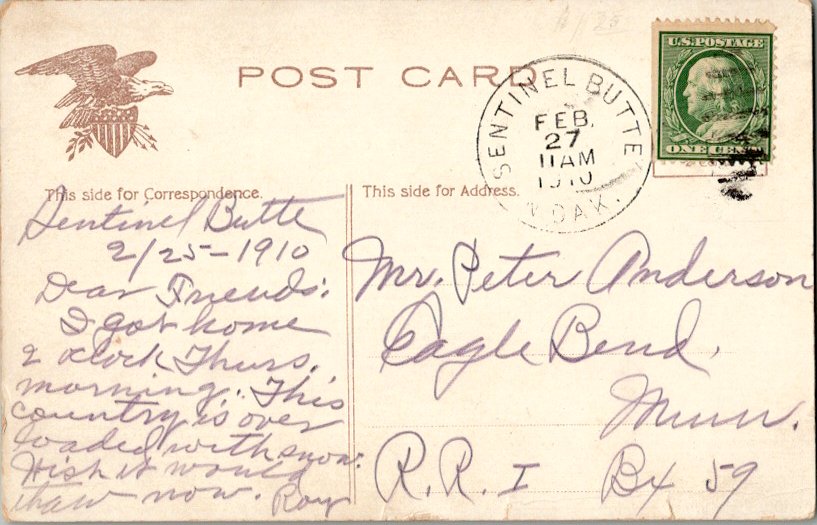 POST CARD
SENTINEL BUTTE
FEB.
27
11AM
1910
N.DAK.
U.S. POSTAGE
ONE CENT
This side for Correspondence.
Sentinel Butte
2/25-1910
Dear Friends:
I got home
2 oclock Thurs.
morning. This
country is over
loaded with snow.
Wish it would
thaw now. Roy
This side for Address.
Mr. Peter Anderson
Eagle Bend,
Minn.
R.R. I Bx 59